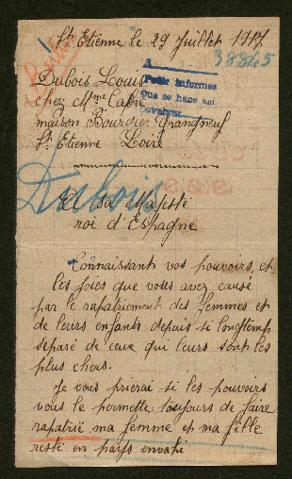 St Etienne le 29 Juillet 1917
38845
Dubois Louis
chez Mme Cabré
maison Bourdier Grangneuf
St Etienne Loire
A
Pedir informes
Que se hace asi
Dubois
A sa Majesté
roi d'Espagne
Connaissant vos pouvoirs, et
les joies que votes avez causé
par le rapatriement des femmes et
de leurs enfants depuis si longtemp
séparé de ceux qui leurs sont les
plus chers.
Je vous prierai si les pouvoirs
vous le permette toujours de faire
rapatrié ma femme et ma fille
resté en pays envahi